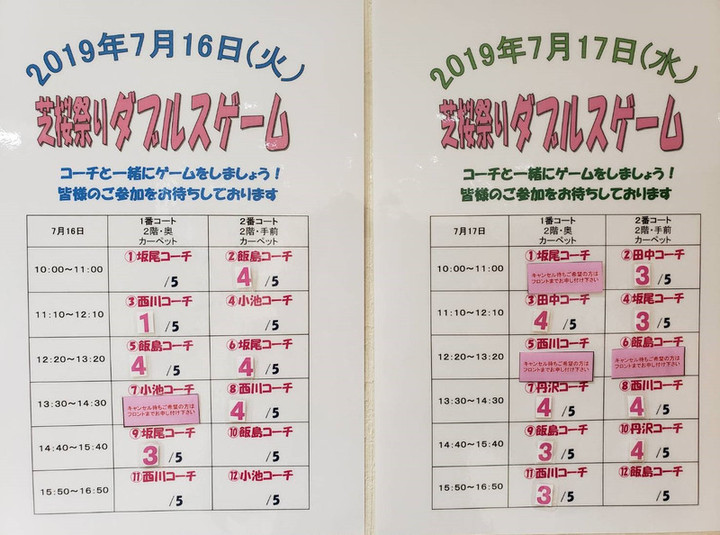 2019年7月16日(火)
芝桜祭りダブルスゲーム
コーチと一緒にゲームをしましょう!
皆様のご参加をお待ちしております
7月16日
1番コート
2階・奥
カーペット
2番コート
2階・手前
カーペット
10:00～11:00
①坂尾コーチ
/5
②飯島コーチ
4 /5
11:10～12:10
③西川コーチ
1 /5
④小池コーチ
/5
12:20～13:20
⑤飯島コーチ
4 /5
⑥坂尾コーチ
4 /5
13:30～14:30
⑦小池コーチ
キャンセル待ちご希望の方は
フロントまでお申し付け下さい
⑧西川コーチ
4 /5
14:40～15:40
⑨坂尾コーチ
3 /5
⑩飯島コーチ
/5
15:50～16:50
⑪西川コーチ
/5
⑫小池コーチ
/5
2019年7月17日(水)
芝桜祭りダブルスゲーム
コーチと一緒にゲームをしましょう!
皆様のご参加をお待ちしております
7月17日
1番コート
2階・奥
カーペット
2番コート
2階・手前
カーペット
10:00～11:00
①坂尾コーチ
キャンセル待ちご希望の方は
フロントまでお申し付け下さい
②田中コーチ
3 /5
11:10～12:10
③田中コーチ
4 /5
④坂尾コーチ
3 /5
12:20～13:20
⑤西川コーチ
キャンセル待ちご希望の方は
フロントまでお申し付け下さい
⑥飯島コーチ
キャンセル待ちご希望の方は
フロントまでお申し付け下さい
13:30～14:30
⑦丹沢コーチ
4 /5
⑧西川コーチ
4 /5
14:40～15:40
⑨飯島コーチ
3 /5
⑩丹沢コーチ
4 /5
15:50～16:50
⑪西川コーチ
3 /5
⑫飯島コーチ
/5